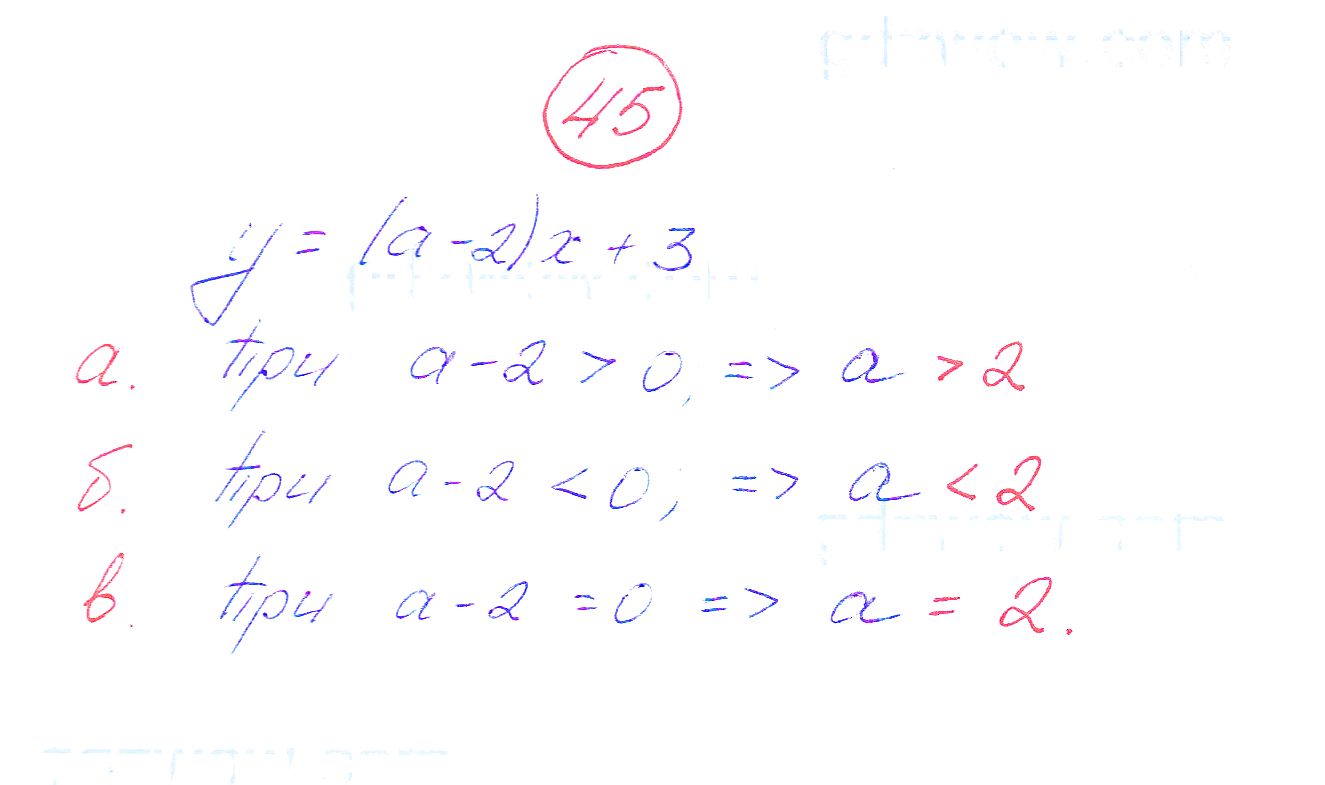 45
y = (a-2)x + 3
а. при a - 2 > 0, => a > 2
б. при a - 2 < 0; => a < 2
в. при a - 2 = 0 => a = 2.